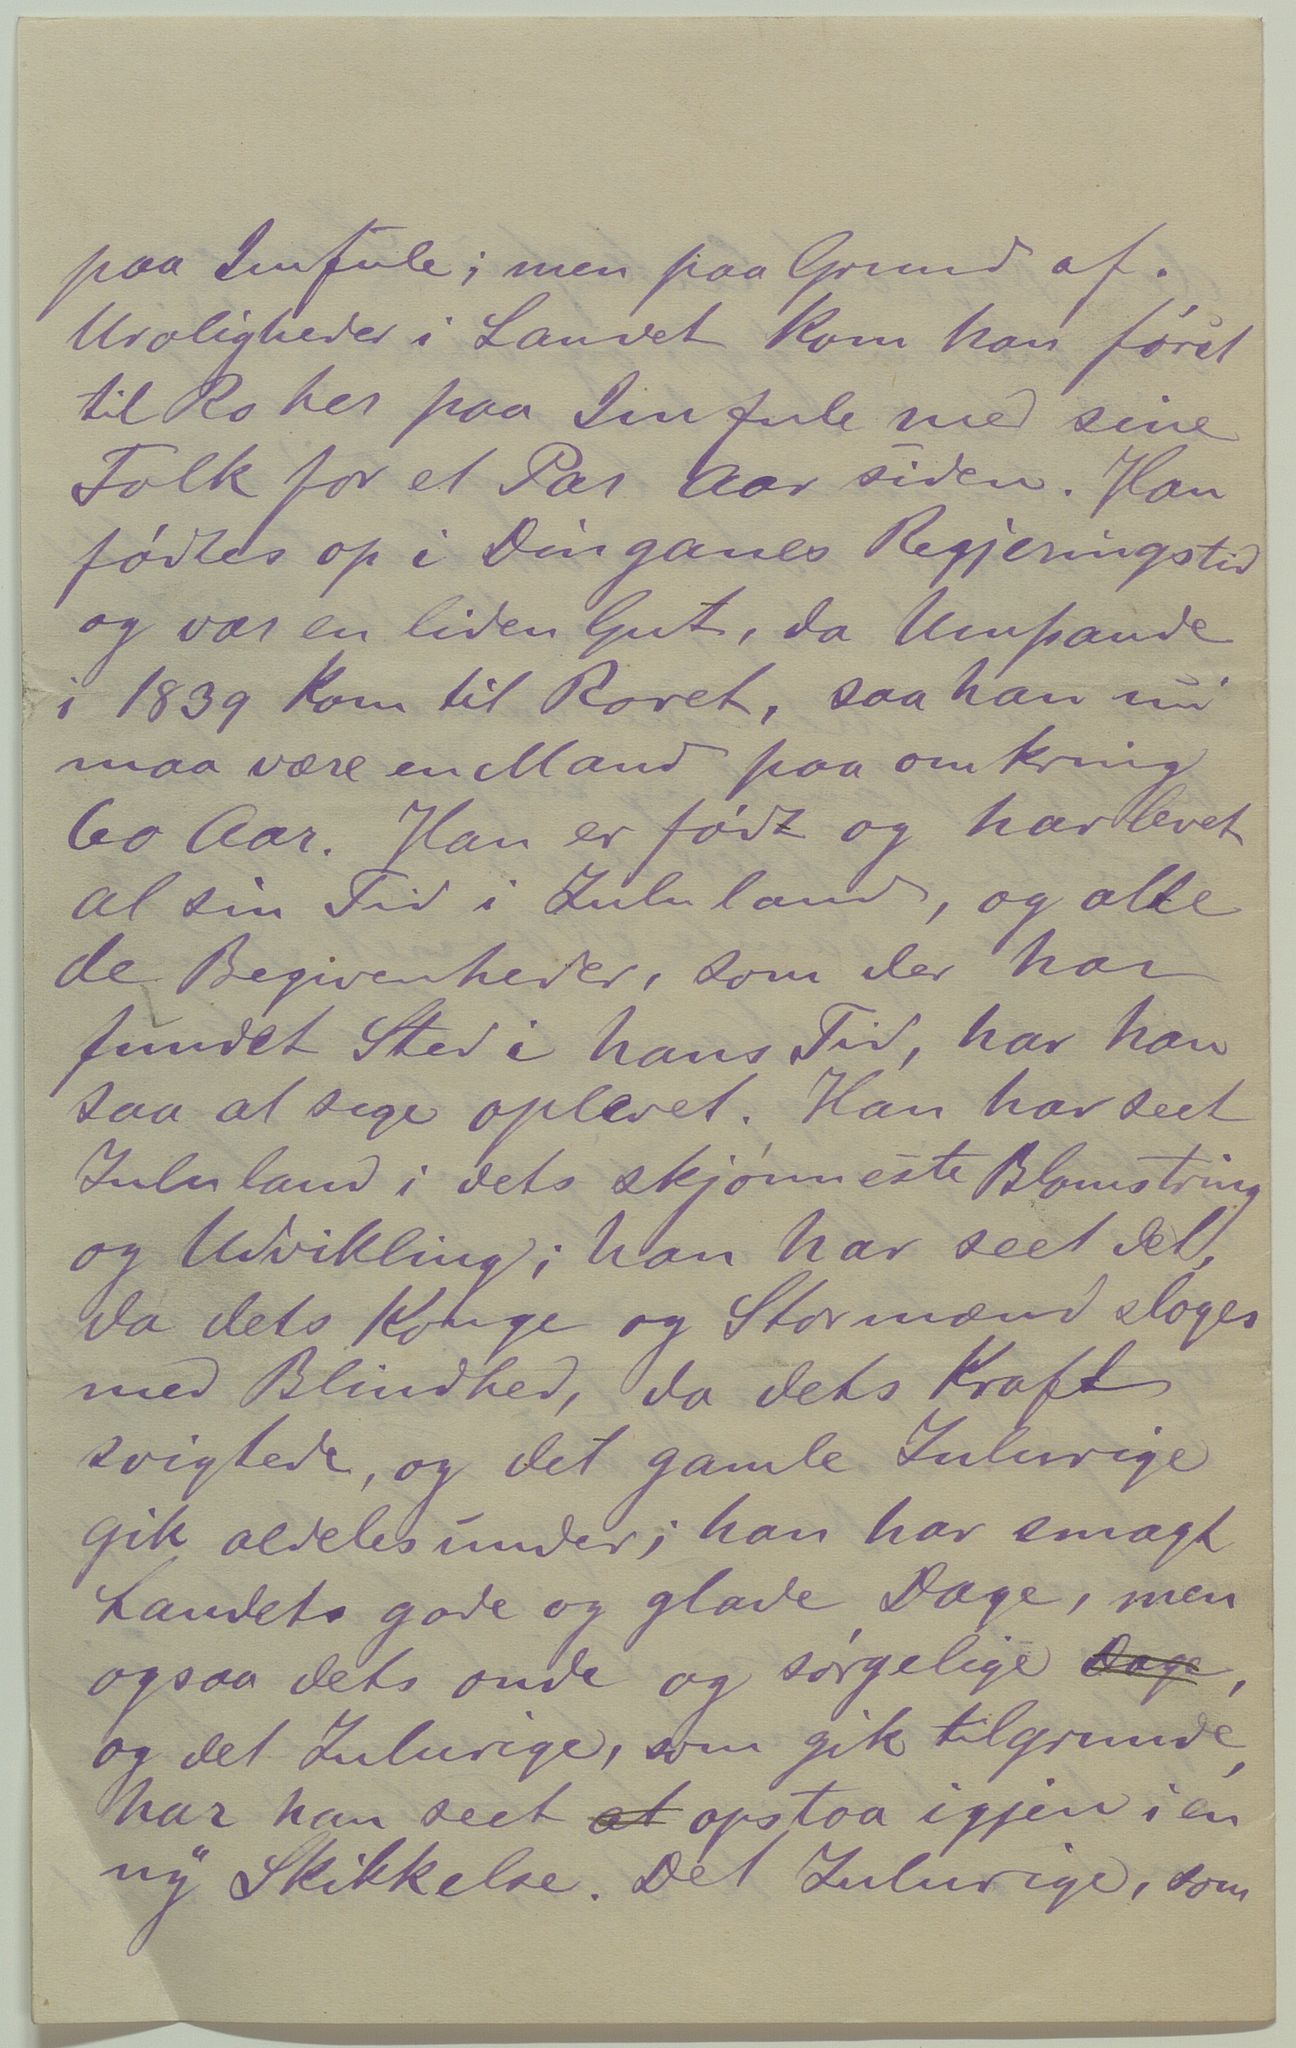 paa Imfule; men paa Grund af.
Uroligheder i Landet kom han først
til Ro her paa Imfule med sine
Folk for et Par Aar siden. Han
fødtes op i Dinganes Regjeringstid
og var en liden Gut, da Umpande
i 1839 kom til Roret, saa han nu
maa være en Mand paa omkring
60 Aar. Han er født og har levet
al sin Tid i Zululand, og alle
de Begivenheder, som der har
fundet Sted i hans Tid, har han
saa at sige oplevet. Han har seet
Zululand i dets skjønneste Blomstring
og Udvikling; han har seet det,
da dets Konge og Stormænd sloges
med Blindhed, da dets Kraft
svigtede, og det gamle Zulurige
gik aldeles under; han har smagt
Landets gode og glade Dage, men
ogsaa dets onde og sørgelige Dage,
og det Zulurige, som gik tilgrunde,
har han seet at opstaa igjen i en
ny Skikkelse. Det Zulurige, som